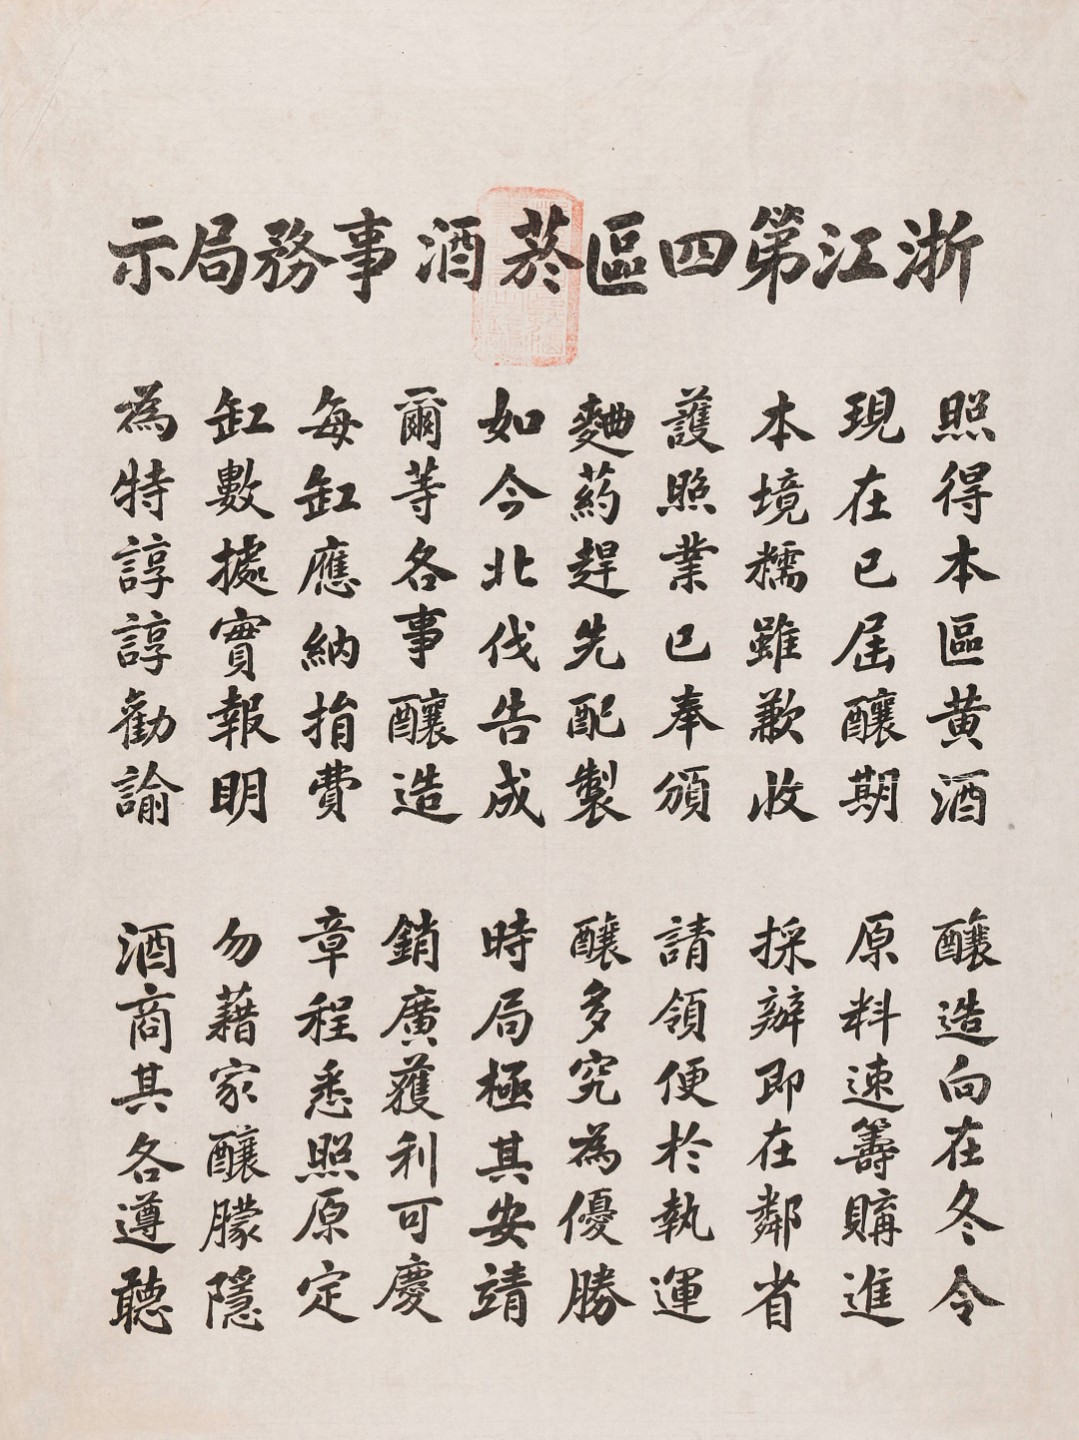 浙江第四區菸酒事務局示
照得本區黄酒
釀造向在冬令
現在已屆釀期
原料速籌購進
本境糯雖歉收
採辦即在鄰省
護照業已奉頒
請領便於執運
麯葯趕先配製
釀多究為優勝
如今北伐告成
時局極其安靖
爾等各事釀造
銷廣獲利可慶
每缸應納捐費
章程悉照原定
缸數據實報明
勿藉家釀朦隱
為特諄諄勸諭
酒商其各遵聽